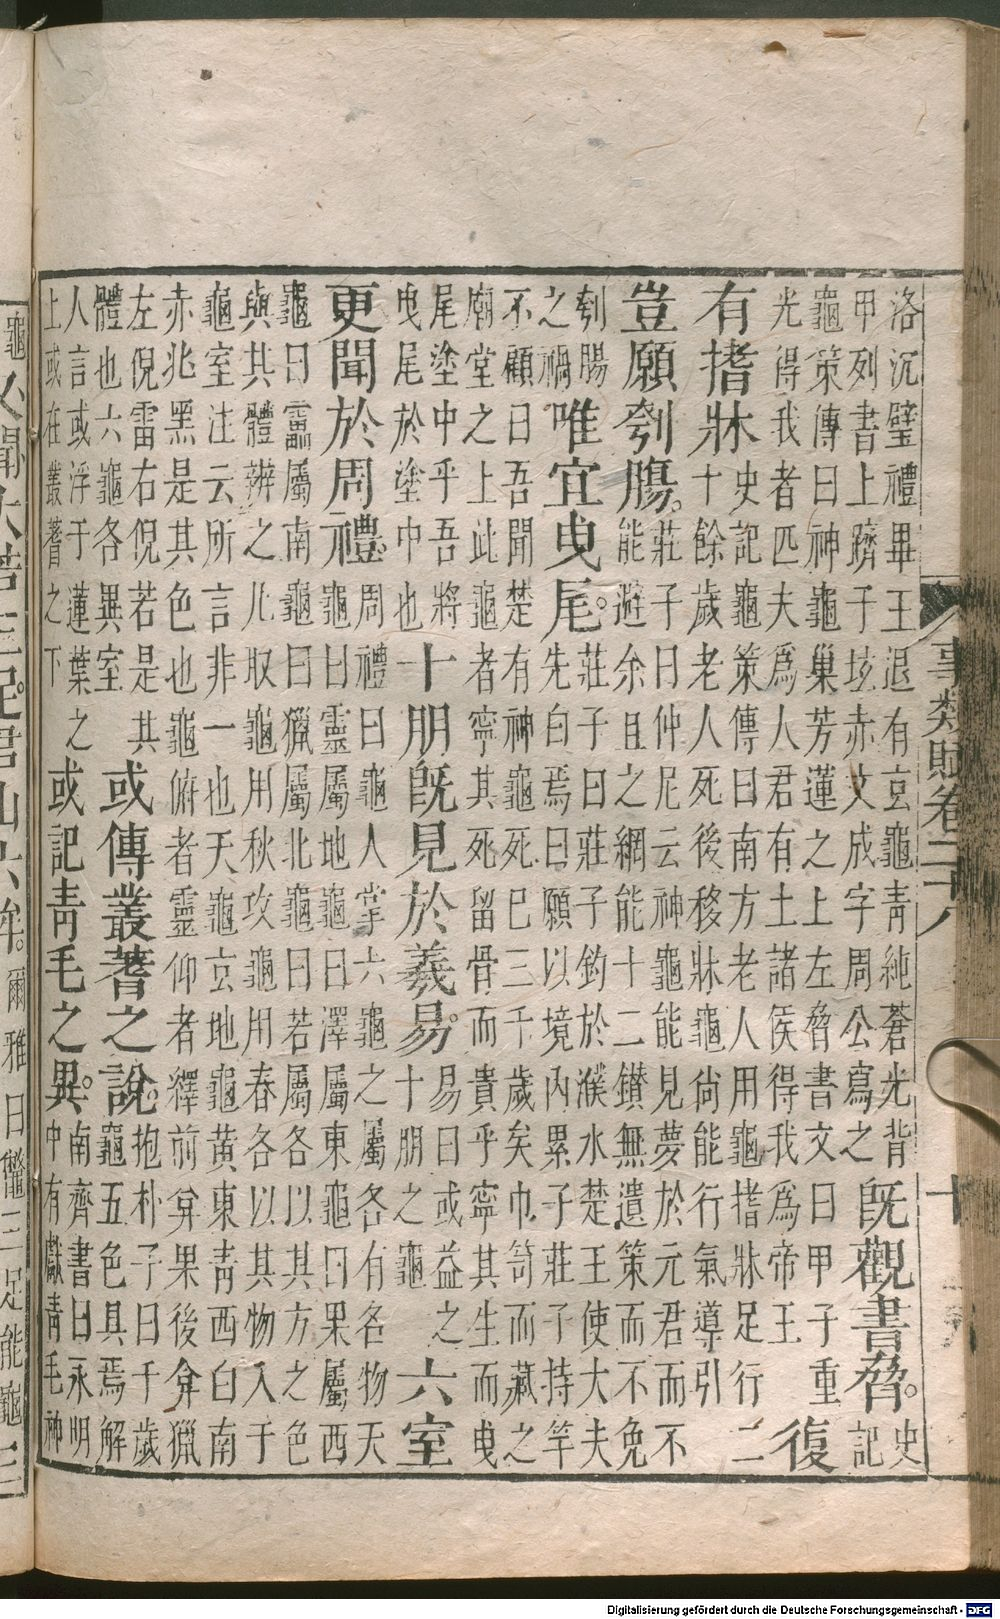 事類賦卷二十八 十
洛沉璧禮畢王退有玄龜青純蒼光背
甲列書上躋于垓赤文成字周公寫之
旣觀書脅。
史
記
龜策傳曰神龜巢芳蓮之上左脅書文曰甲子重
光得我者匹夫爲人君有土諸侯得我爲帝王
復
有搘牀
史記龜策傳曰南方老人用龜搘牀足行二
十餘歲老人死後移牀龜尚能行氣導引
豈願刳腸。
莊子曰仲尼云神龜能見夢於元君而不
能避余且之網能十二鑚無遺策而不免
刳腸
之禍
唯宜曳尾。
莊子曰莊子釣於濮水楚王使大夫
先白焉曰願以境內累子莊子持竿
不顧曰吾聞楚有神龜死已三千歲矣巾笥而藏之
廟堂之上此龜者寧其死留骨而貴乎寧其生而曳
尾塗中乎吾將
曳尾於塗中也
十朋旣見於羲易。
易曰或益之
十朋之龜
六室
更聞於周禮。
周禮曰龜人掌六龜之屬各有各物天
龜曰靈屬地龜曰澤屬東龜曰果屬西
龜曰靁屬南龜曰獵屬北龜曰若屬各以其方之色
與其體辨之凡取龜用秋攻龜用春各以其物入于
龜室注云所言非一也天龜玄地龜黃東青西白南
赤兆黑是其色也龜俯者靈仰者繹前弇果後弇獵
左倪雷右倪若是其
體也六龜各異室
或傳叢蓍之說。
抱朴子曰千歲
龜五色具焉解
人言或浮于蓮葉之
上或在叢蓍之下
或記青毛之異。
南齊書曰永明
中有獻青毛神
Digitalisierung gefördert durch die Deutsche Forschungsgemeinschaft - DFG